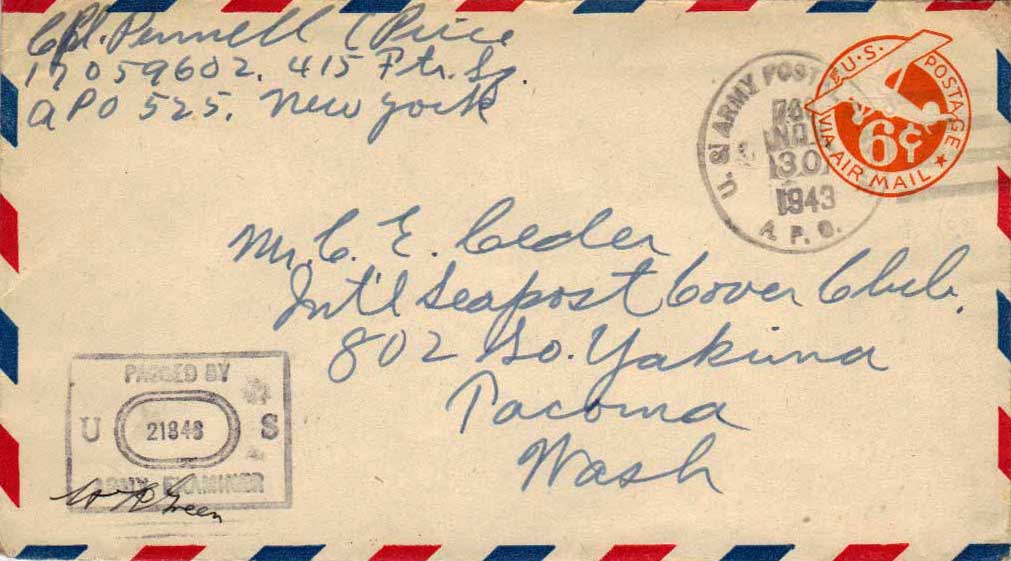 Cpl. Pernell C Price
17059602. 415 Ftr. Sq.
APO 525. New York
U.S. ARMY POST
NO
30
1943
A. P. O.
U.S. POSTAGE
6¢
VIA AIR MAIL
Mr. C. E. Ceder
Int'l Seapost Cover Club.
802 So. Yakima
Tacoma
Wash
PASSED BY
U 21848 S
ARMY EXAMINER
Green